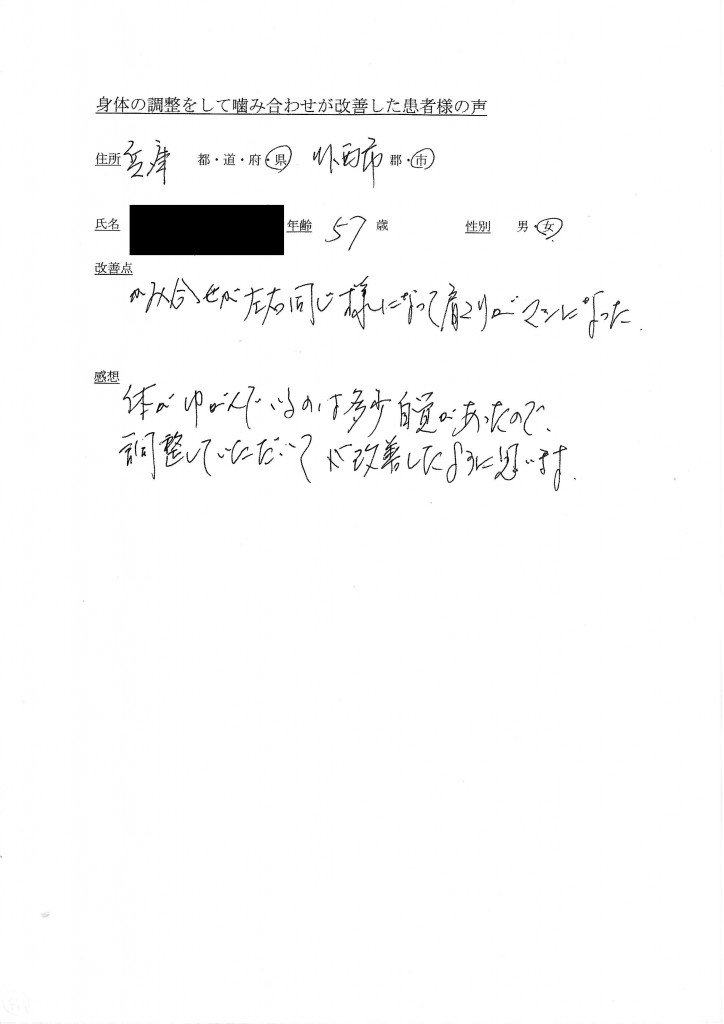 身体の調整をして噛み合わせが改善した患者様の声
住所 兵庫 都・道・府・県 川西市 郡・市
氏名 年齢 57 歳 性別 男・女
改善点
かみ合せが左右同じ様になって肩こりがマシになった.
感想
体がゆがんでいるのは多少自覚があったので、
調整していただいて 改善したように思います.